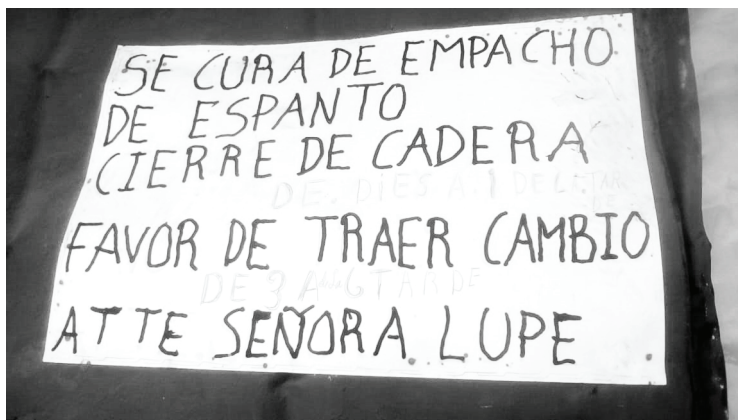 SE CURA DE EMPACHO
DE ESPANTO
CIERRE DE CADERA
DE. DIES A. 1 DE LA TAR
FAVOR DE TRAER CAMBIO
DE 3 A 6 TARDE
ATTE SEÑORA LUPE